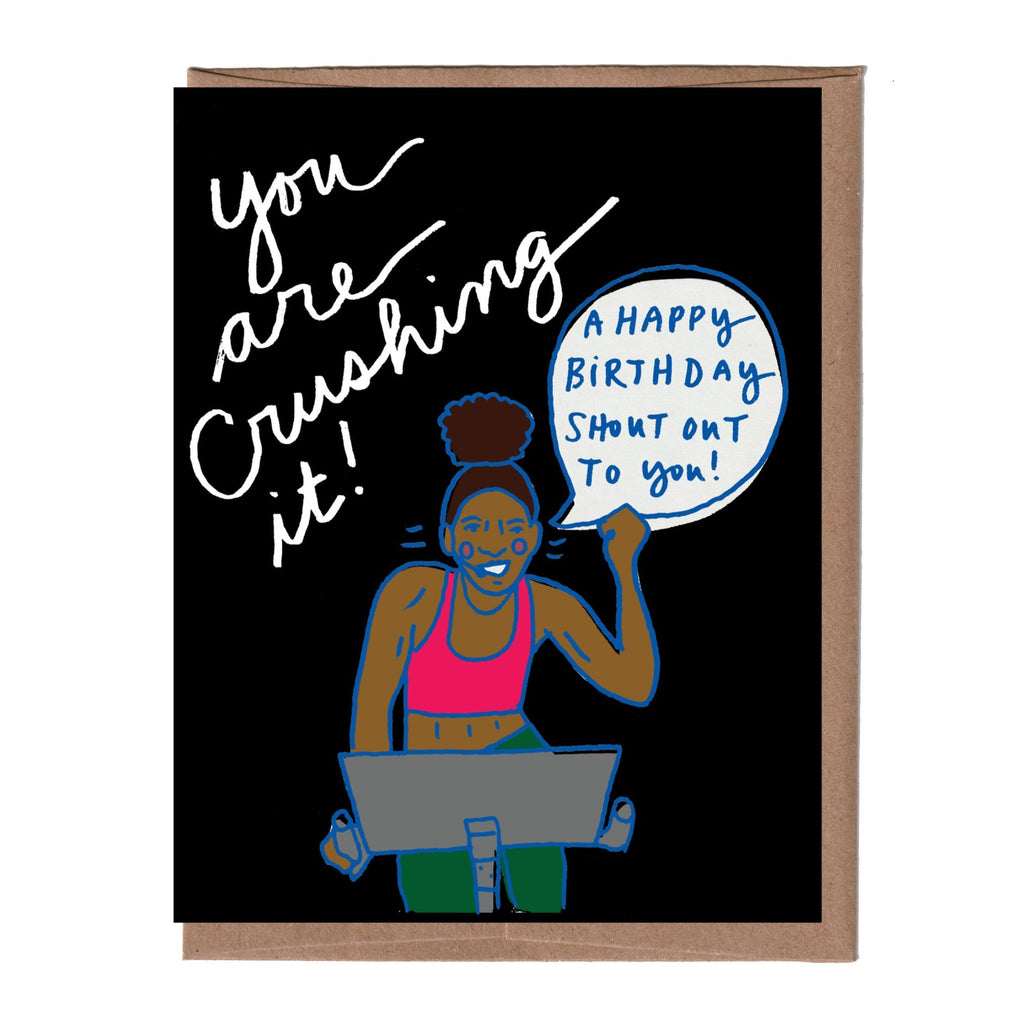 you
are
Crushing
it!
A HAPPY
BiRTHDAY
SHOUT OUT
TO you!